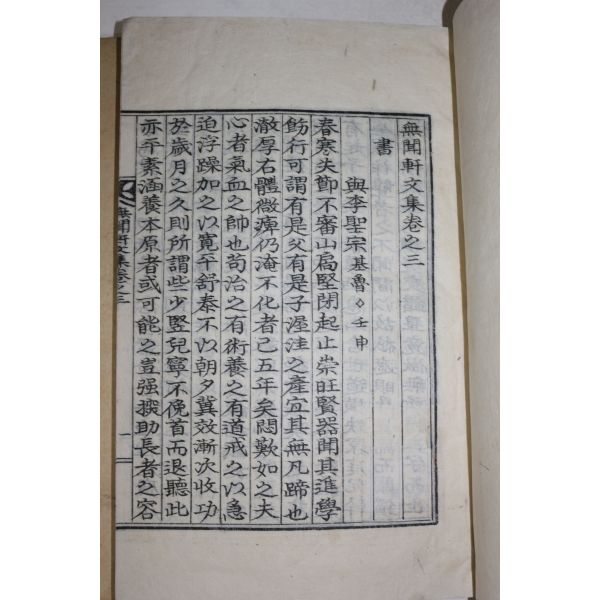 無聞軒文集卷之三
書
與李聖宗基魯○壬申
春寒失節不審山扃堅閉起止崇旺賢器聞其進學
飭行可謂有是父有是子渥洼之產宜其無凡蹄也
澈厚右體微痺仍淹不化者已五年矣悶歎如之夫
心者氣血之帥也苟治之有術養之有道戒之以急
迫浮躁加之以寬平舒泰不以朝夕冀效漸次收功
於歲月之久則所謂些少竪兒寧不俛首而退聽此
亦平素涵養本原者或可能之豈强揠助長者之容
無聞軒文集卷之三
一